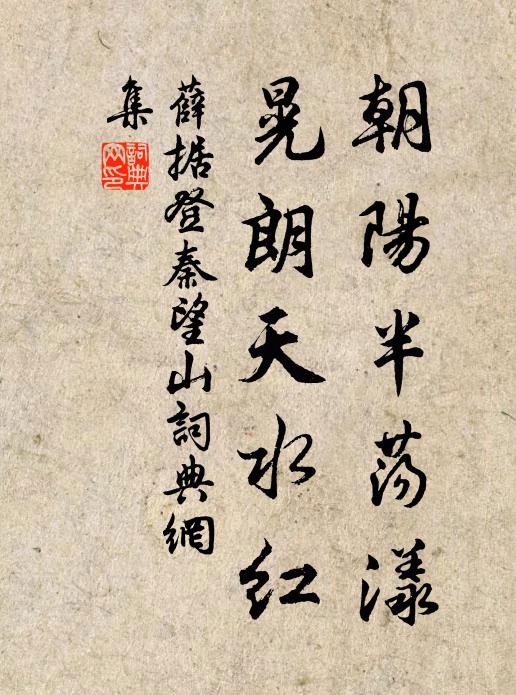 朝陽半蕩漾
晃朗天水红
薛据登秦望山詞典網
集
詞典網印